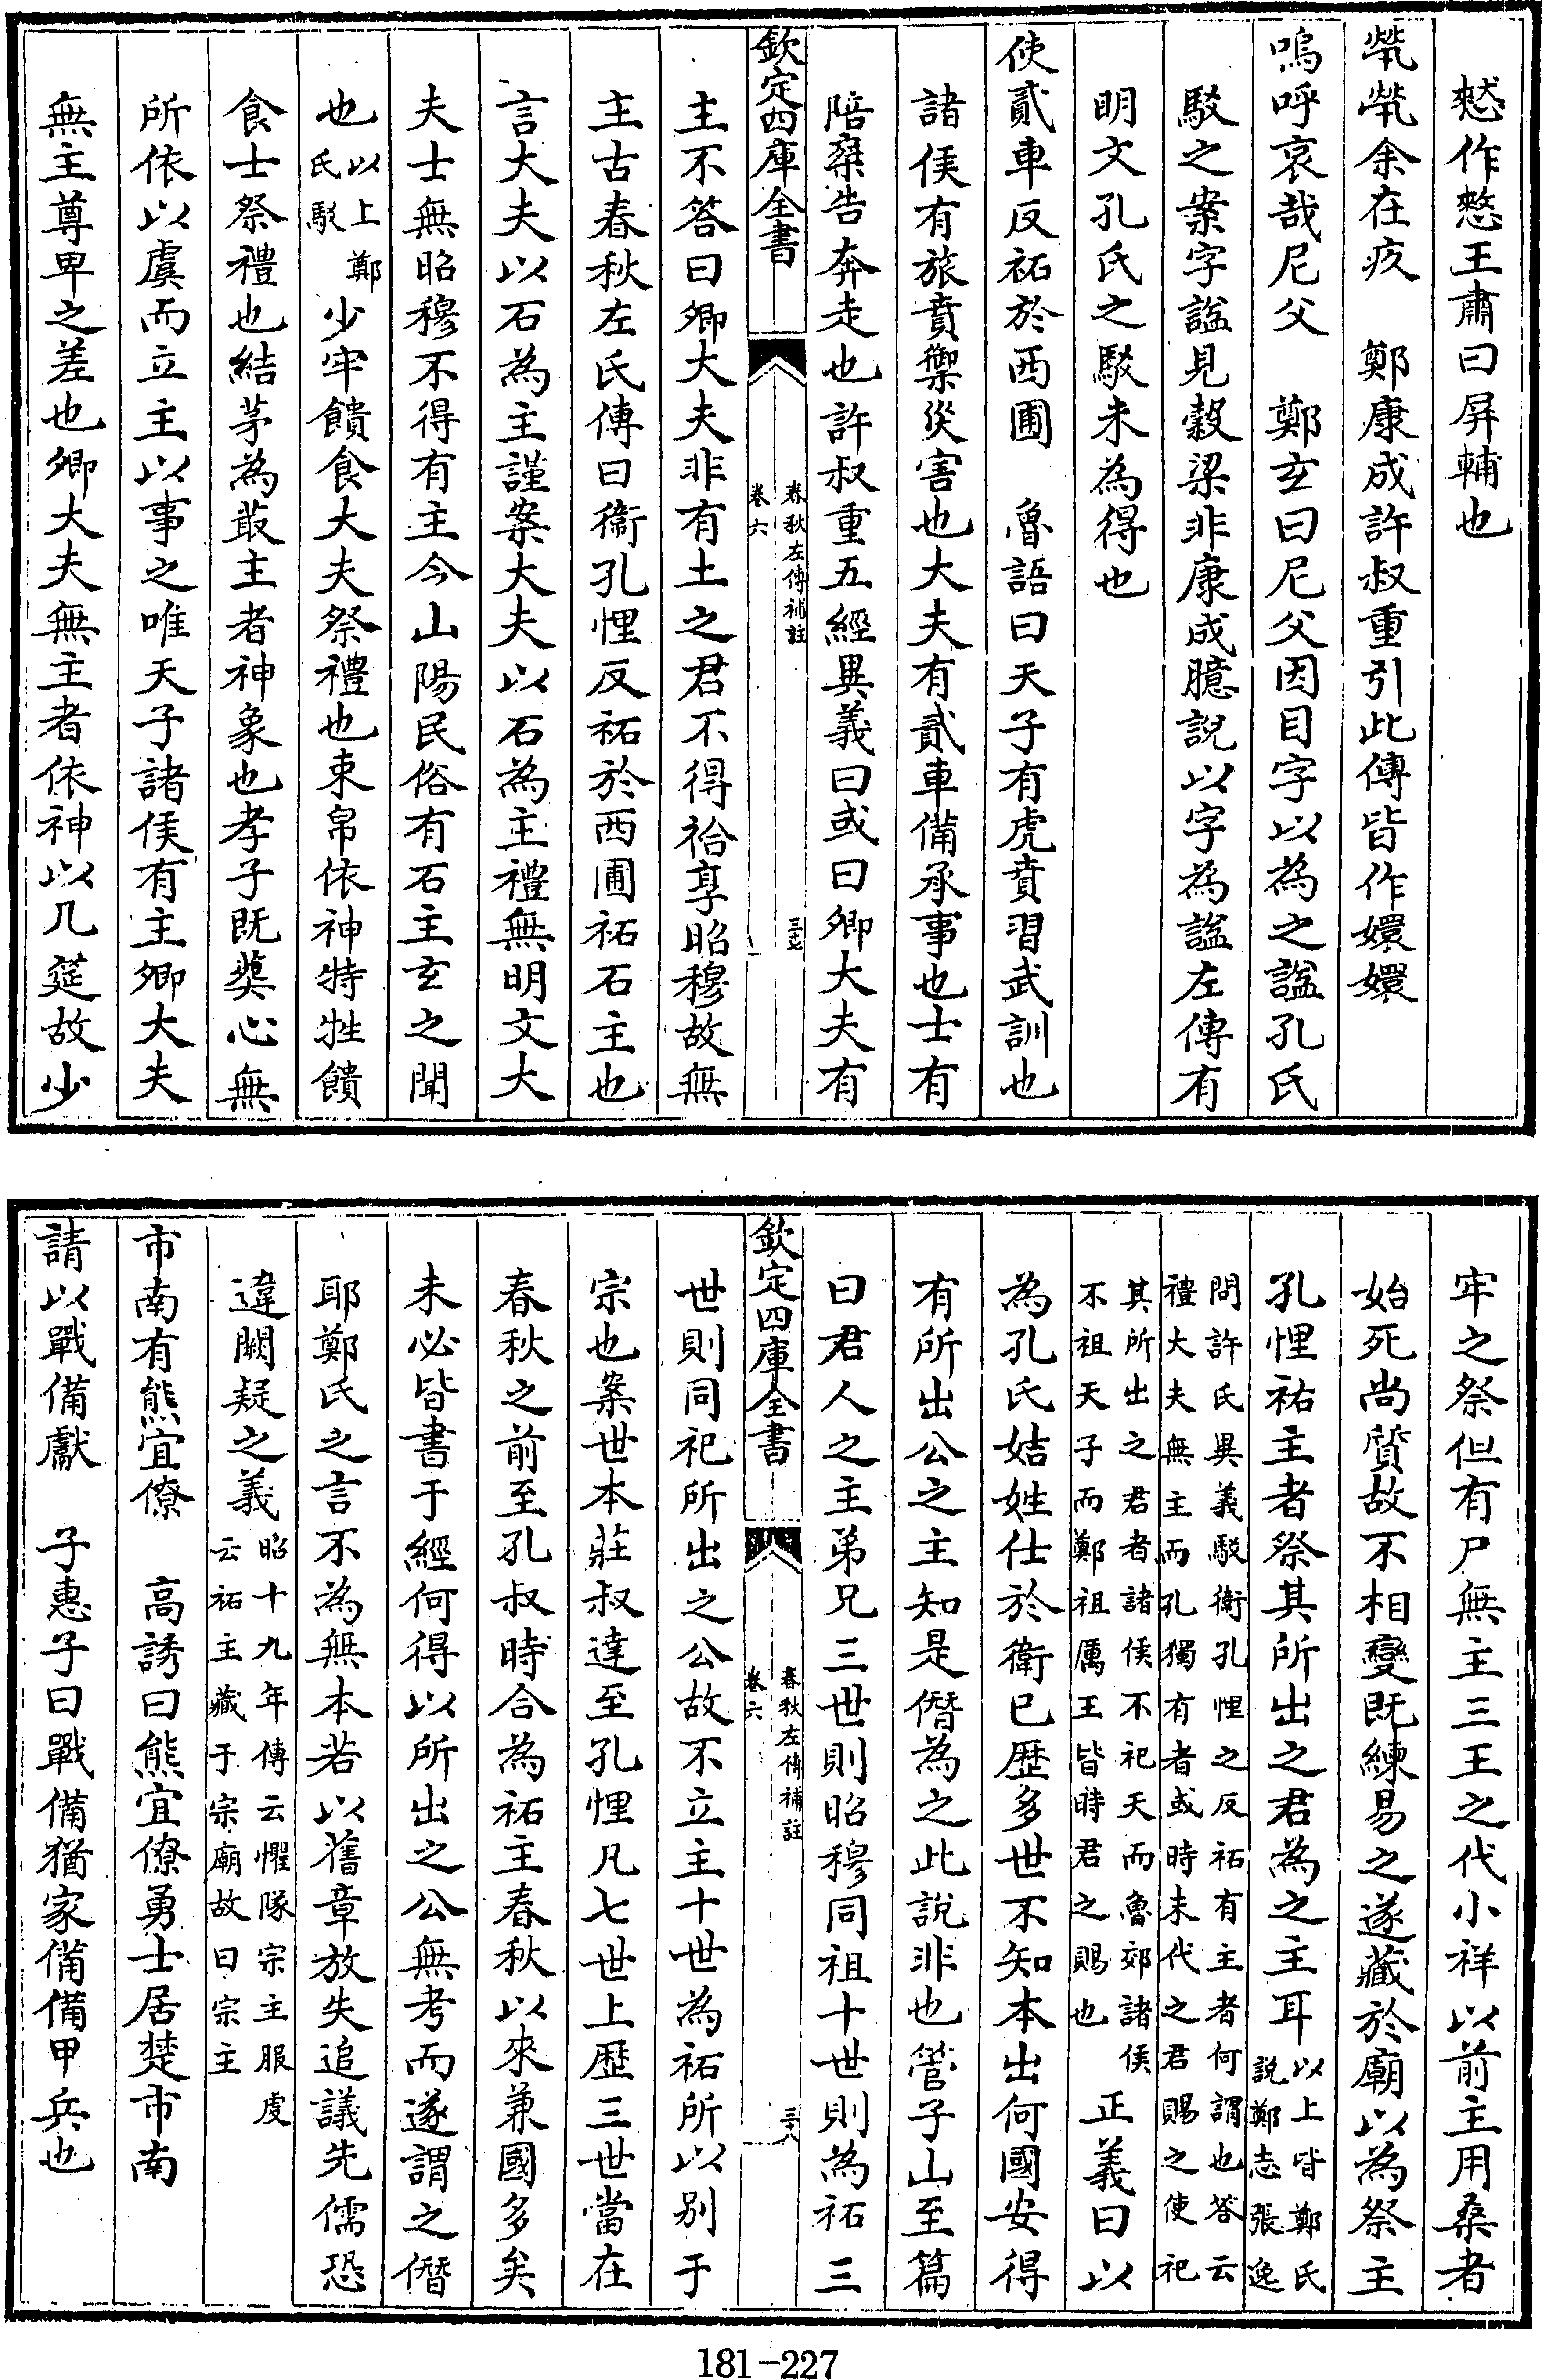 憖作憗王肅曰屏輔也
煢煢余在疚　鄭康成許叔重引此傳皆作嬛嬛
嗚呼哀哉尼父　鄭玄曰尼父因目字以為之謚孔氏
駁之案字謚見穀梁非康成臆說以字為謚左傳有
明文孔氏之駁未為得也
使貳車反祏於西圃　魯語曰天子有虎賁習武訓也
諸侯有旅賁禦災害也大夫有貳車備承事也士有
陪乗告奔走也許叔重五經異義曰或曰卿大夫有
欽定四庫全書
春秋左傳補註
卷六
三十七
主不答曰卿大夫非有土之君不得祫享昭穆故無
主古春秋左氏傳曰衞孔悝反祏於西圃祏石主也
言大夫以石為主謹案大夫以石為主禮無明文大
夫士無昭穆不得有主今山陽民俗有石主玄之聞
也以上鄭氏駁少牢饋食大夫祭禮也束帛依神特牲饋
食士祭禮也結茅為菆主者神象也孝子既葬心無
所依以虞而立主以事之唯天子諸侯有主卿大夫
無主尊卑之差也卿大夫無主者依神以几筵故少
牢之祭但有尸無主三王之代小祥以前主用桑者
始死尚質故不相變既練易之遂藏於廟以為祭主
孔悝祐主者祭其所出之君為之主耳以上皆鄭氏說鄭志張逸
問許氏異義駁衞孔悝之反祏有主者何謂也答云
禮大夫無主而孔獨有者或時末代之君賜之使祀
其所出之君者諸侯不祀天而魯郊諸侯
不祖天子而鄭祖厲王皆時君之賜也　正義曰以
為孔氏姞姓仕於衛已歷多世不知本出何國安得
有所出公之主知是僭為之此說非也管子山至篇
曰君人之主弟兄三世則昭穆同祖十世則為祏三
欽定四庫全書
春秋左傳補註
卷六
三十八
世則同祀所出之公故不立主十世為祏所以別于
宗也案世本莊叔達至孔悝凡七世上歷三世當在
春秋之前至孔叔時合為祏主春秋以來兼國多矣
未必皆書于經何得以所出之公無考而遂謂之僭
耶鄭氏之言不為無本若以舊章放失追議先儒恐
違闕疑之義昭十九年傳云懼隊宗主服虔云祏主藏于宗廟故曰宗主
市南有熊宜僚　高誘曰熊宜僚勇士居楚市南
請以戰備獻　子惠子曰戰備猶家備備甲兵也
181-227